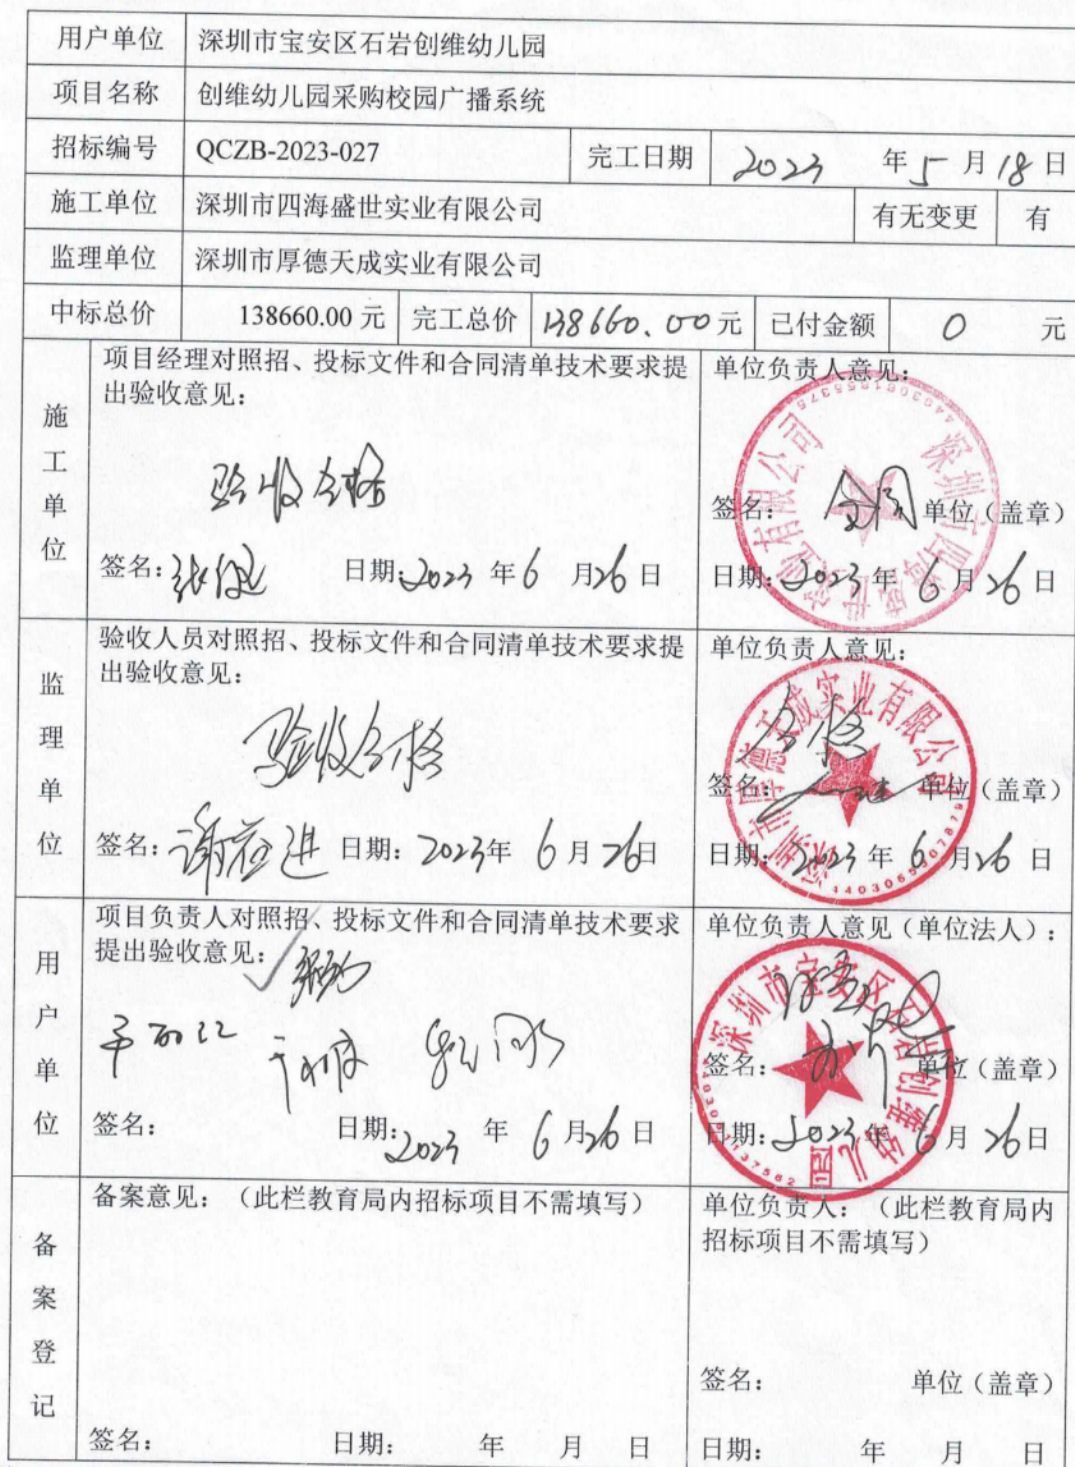 用户单位 深圳市宝安区石岩创维幼儿园
项目名称 创维幼儿园采购校园广播系统
招标编号 QCZB-2023-027 完工日期 2023 年 5 月 18 日
施工单位 深圳市四海盛世实业有限公司 有无变更 有
监理单位 深圳市厚德天成实业有限公司
中标总价 138660.00 元 完工总价 138660.00 元 已付金额 0 元
施工单位
项目经理对照招、投标文件和合同清单技术要求提
出验收意见：
验收合格
签名： 日期：2023 年 6 月 26 日
单位负责人意见：
签名： 单位（盖章）
日期：2023 年 6 月 26 日
深圳市四海盛世实业有限公司
监理单位
验收人员对照招、投标文件和合同清单技术要求提
出验收意见：
验收合格
签名：谢莅进 日期：2023年 6 月 26日
单位负责人意见：
合格
签名： 单位（盖章）
日期：2023 年 6 月 26 日
深圳市厚德天成实业有限公司
用户单位
项目负责人对照招、投标文件和合同清单技术要求
提出验收意见：
签名： 日期：2023 年 6 月 26 日
单位负责人意见（单位法人）：
签名： 单位（盖章）
日期：2023 年 6 月 26 日
深圳市宝安区石岩创维幼儿园
备案登记
备案意见：（此栏教育局内招标项目不需填写）
签名： 日期： 年 月 日
单位负责人：（此栏教育局内
招标项目不需填写）
签名： 单位（盖章）
日期： 年 月 日